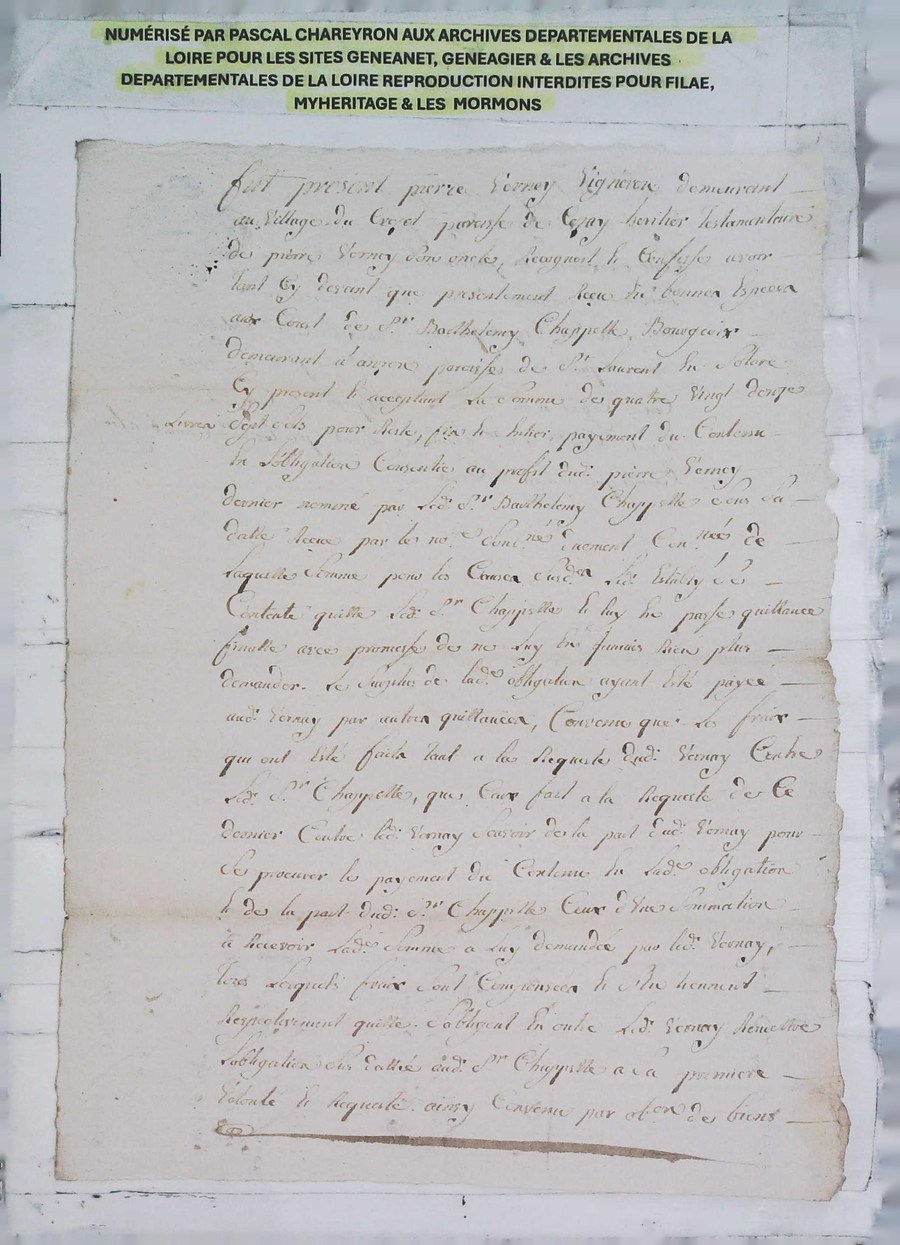 NUMÉRISÉ PAR PASCAL CHAREYRON AUX ARCHIVES DEPARTEMENTALES DE LA
LOIRE POUR LES SITES GENEANET, GENEAGIER & LES ARCHIVES
DEPARTEMENTALES DE LA LOIRE REPRODUCTION INTERDITES POUR FILAE,
MYHERITAGE & LES MORMONS
fut present pierre Verney Vigneron demeurant
au Village du Crozet paroisse de heritier testamentaire
de pierre Verney Son oncle, Recognoit et Confesse avoir
tant Cy devant que presentement Receu En bonnes Especes
aux Cours de Sr Barthelemy Chappelle Bourgeois
demeurant d'anzon paroisse de St Laurent En Solore
Cy present et acceptant La Somme de quatre Vingt donze
Livres Sept Sols pour Reste, fin et Entier payement du Contenu
En L'obligation Consentie au profit dud: pierre Verney
dernier nommé par Led: Sr Barthelemy Chappelle Sous Sa
datte Receue par les nores duement de
Laquelle Somme pour les Causes Susd: Led: Estably Se
Contente quitte Led: Sr Chappelle et luy En passe quittance
finalle avec promesse de ne Luy En Jamais Rien plus
demander. Le Surplus de lade obligation ayant Eté payée
aud: Vernay par autres quittances, Convenu que Les fraix
qui ont Eté faits tant a la Requeste dud: Vernay Contre
Led: Sr Chappelle, que Ceux fait a la Requeste de Ce
dernier Contre led: Vernay Scavoir de la part dud: Vernay pour
Se procurer le payement du Contenu En Lade obligation
et de la part dud: Sr Chappelle Ceux d'Une Sommation
a Recevoir Lade Somme a Luy demandée par led: Vernay,
tous Lesquels fraix Sont Compensés et S'En tiennent
Respectivement quitte. S'obligent En outre Led: Vernay Remettre
L'obligation Sus dattée aud: Sr Chappelle a Sa premiere
Volonté et Requeste. ainsy Convenu par obon de biens